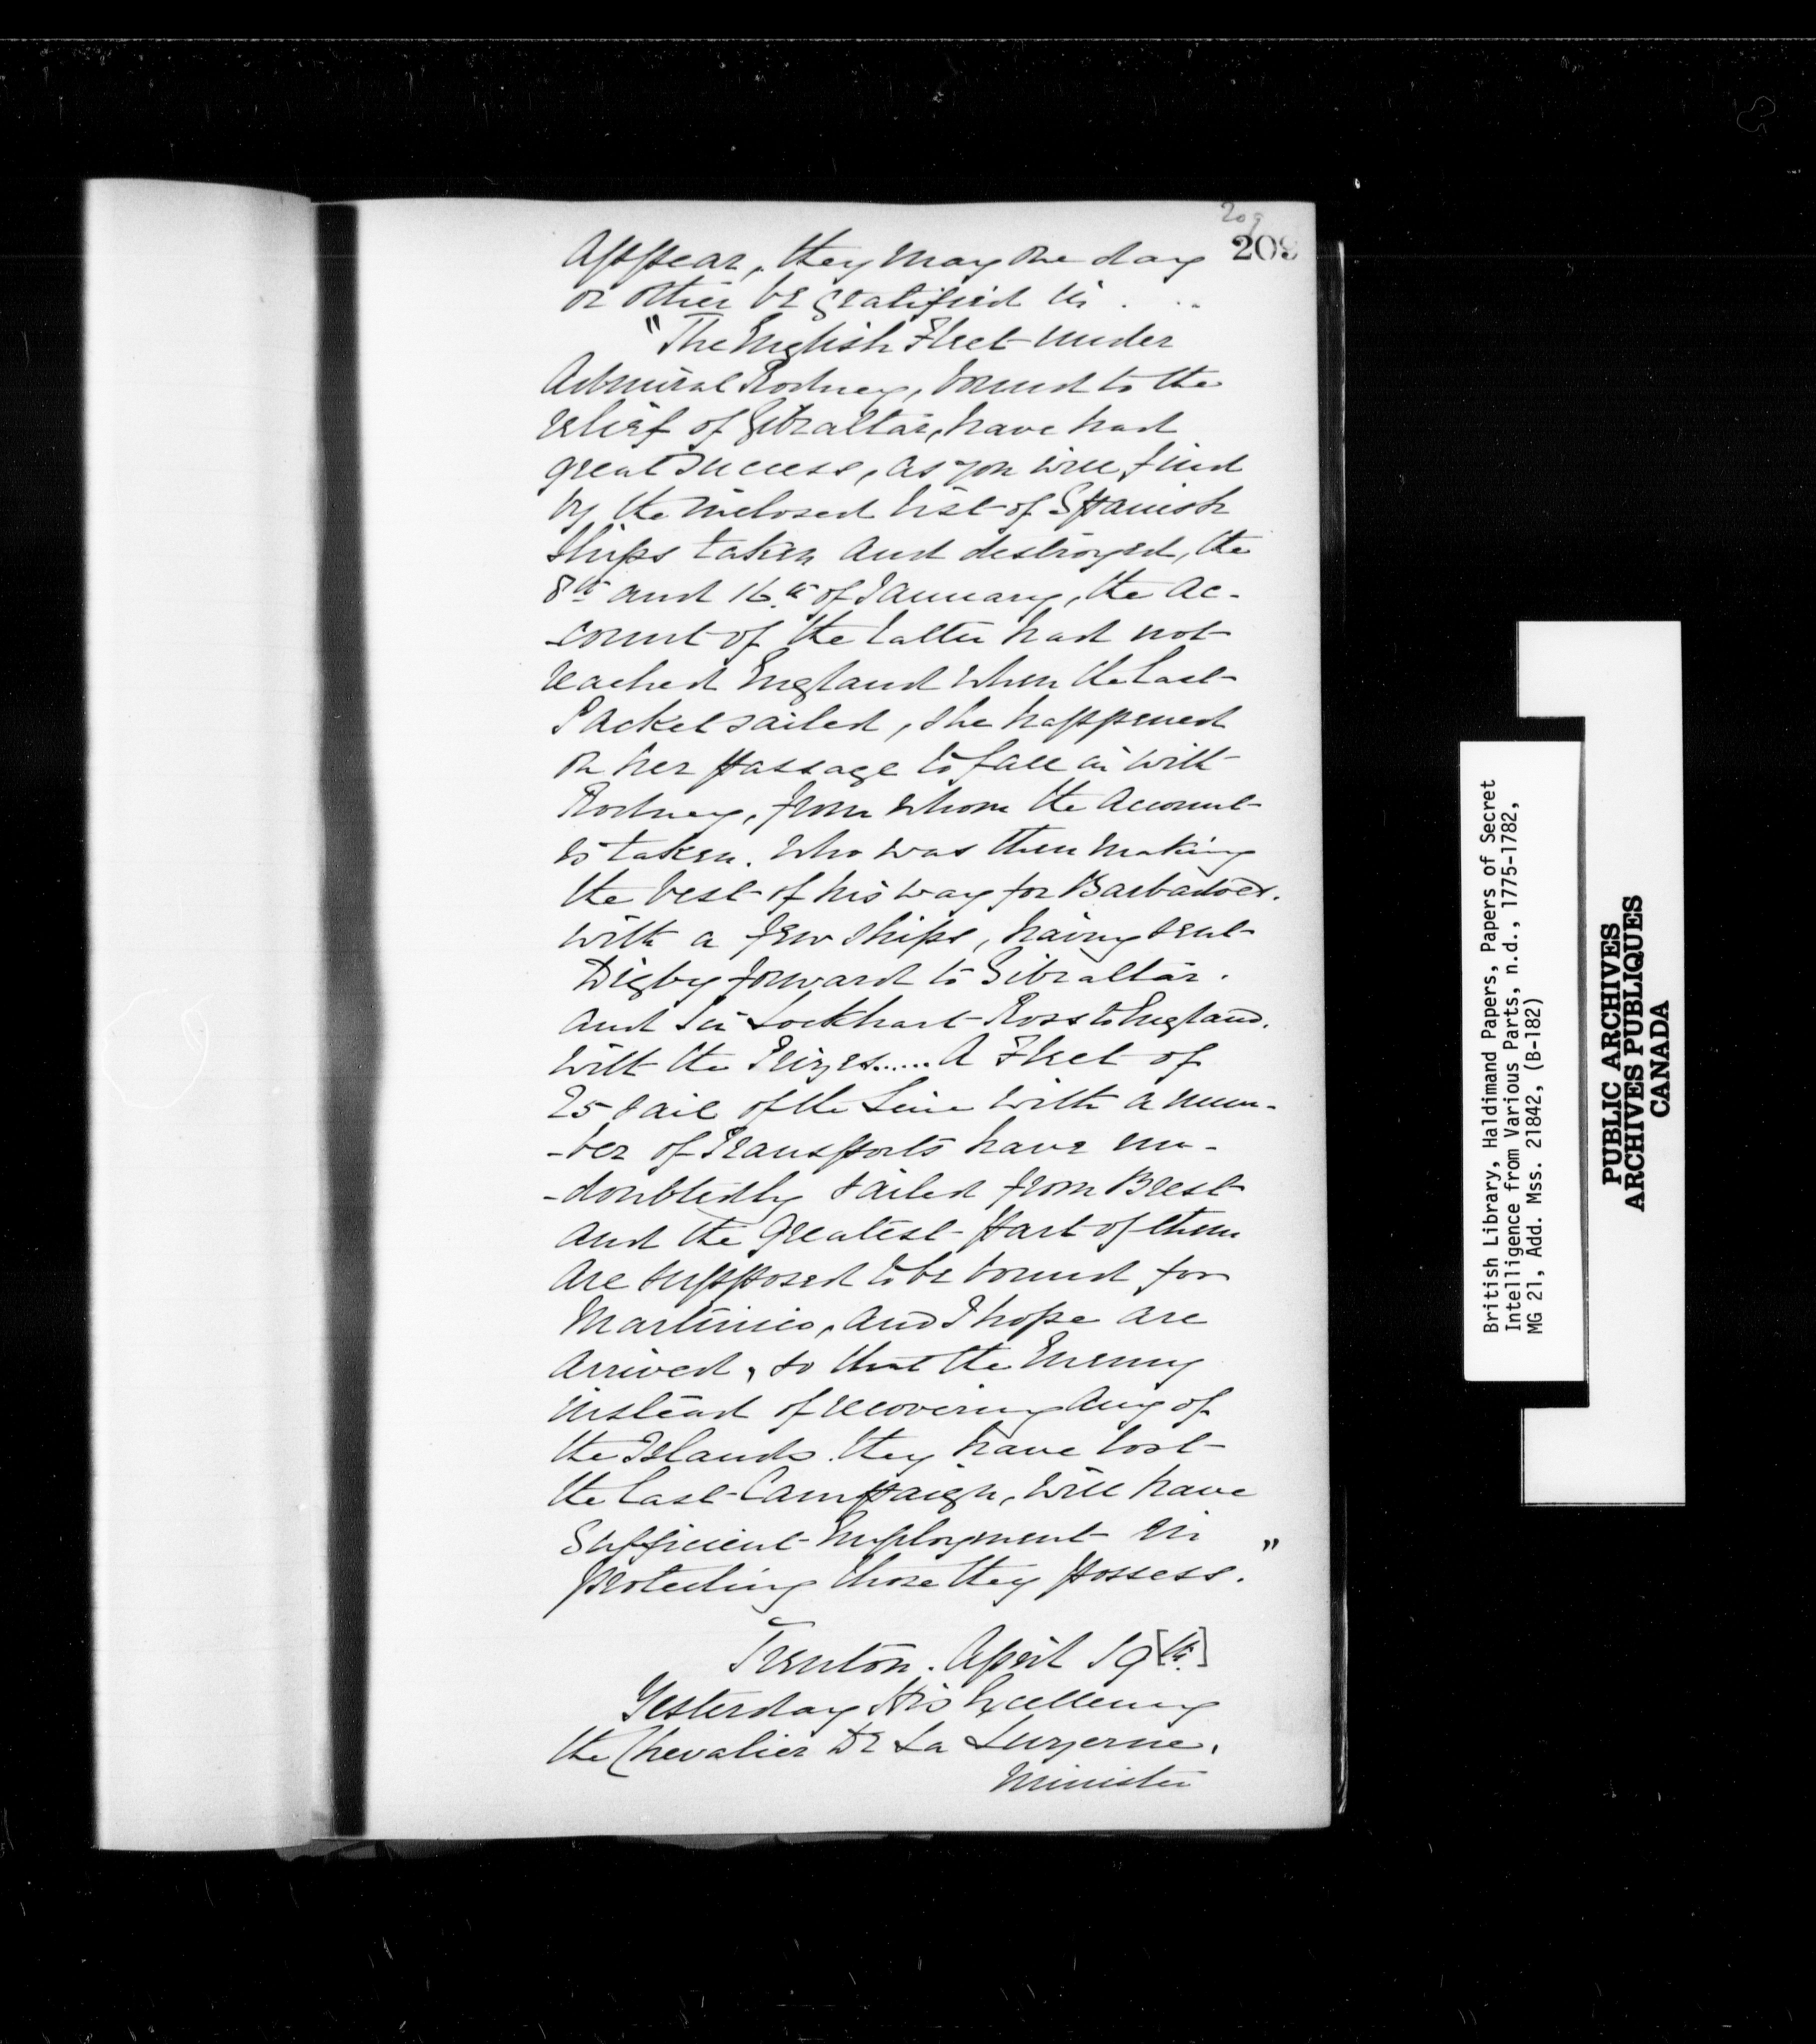 209
209
Appear, they may one day
or other be gratified in . . .
"The English Fleet under
Admiral Rodney, bound to the
relief of Gibraltar, have had
great Success, as you will find
by the inclosed list of Spanish
Ships taken and destroyed, the
8th and 16.th of January, the Ac-
-count of the latter had not
reached England when the last
Packet sailed, she happened
on her passage to fall in with
Rodney, from whom the Account
is taken. who was then making
the best of his way for Barbadoes.
with a few Ships, having sent
Digby forward to Gibraltar.
and Sir Lockhart Ross to England.
with the Prizes...... A Fleet of
25 sail of the Line with a num-
-ber of Transports have un-
-doubtedly sailed from Brest
and the greatest part of them
are supposed to be bound for
Martinico, and I hope are
arrived, so that the Enemy
instead of recovering any of
the Islands they have lost
the last Campaign, will have
Sufficient Employment in
protecting those they possess."
Trenton. April 19[th.]
Yesterday His Excellency
the Chevalier De La Luzerne.
Minister
British Library, Haldimand Papers, Papers of Secret
Intelligence from Various Parts, n.d., 1775-1782,
MG 21, Add. Mss. 21842, (B-182)
PUBLIC ARCHIVES
ARCHIVES PUBLIQUES
CANADA